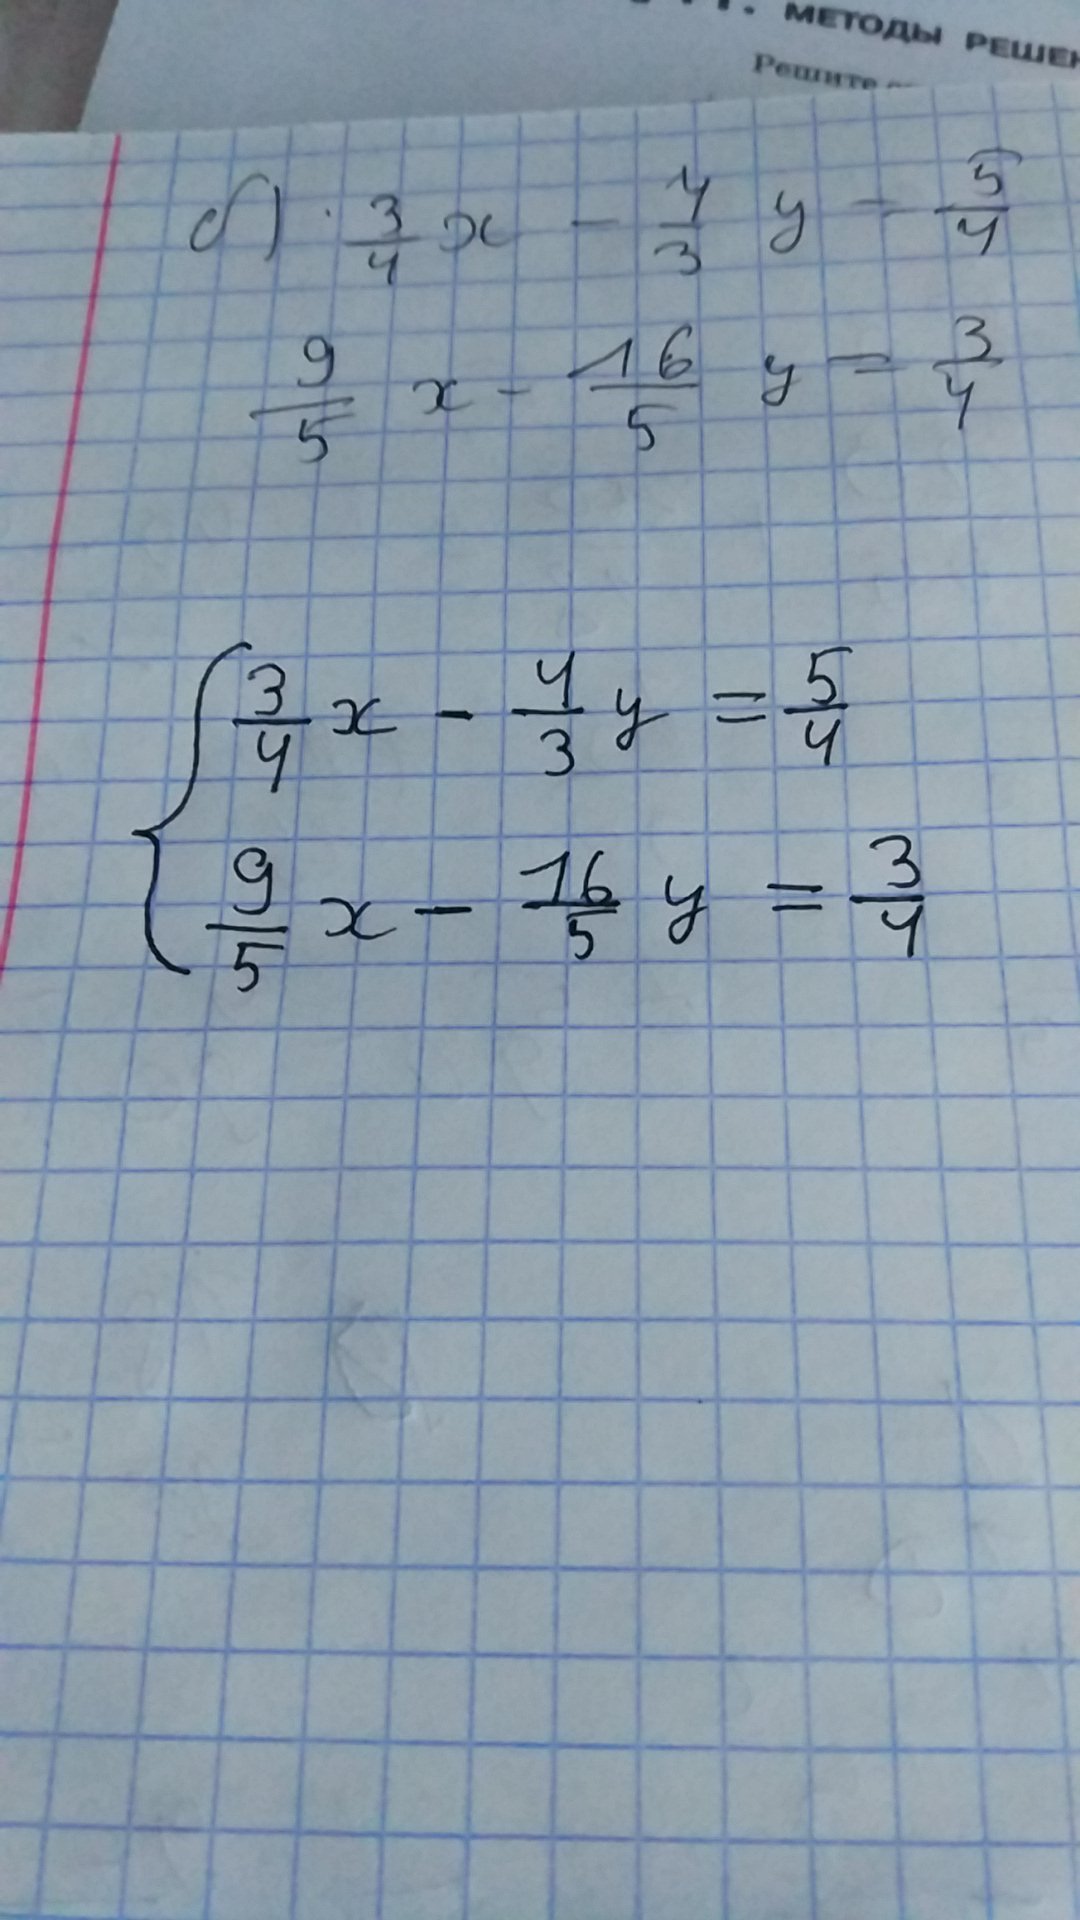 МЕТОДЫ РЕШЕН
Решите
б) 3/4 x - 4/3 y = 5/4
9/5 x - 16/5 y = 3/4
{ 3/4 x - 4/3 y = 5/4
9/5 x - 16/5 y = 3/4